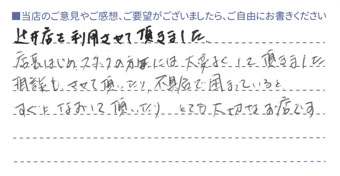 ■当店のご意見やご感想、ご要望がございましたら、ご自由にお書きください
辻井店を利用させて頂きました
店長はじめスタッフの方々には大変よくして頂きました
相談もさせて頂いたり、不具合で困っていると
すぐになおして頂いたり とても大切なお店です